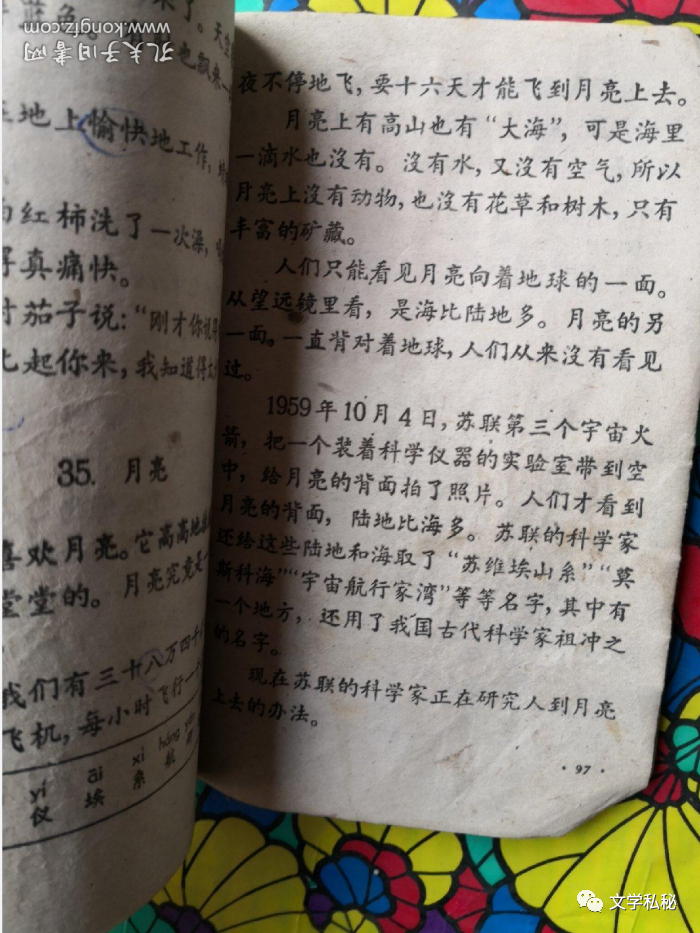 孔夫子旧书网
www.kongfz.com
了。天空
也飘来一
地上愉快地工作,
红柿洗了一次澡,
真痛快。
茄子说:“刚才你说
起你来,我知道得太
35. 月亮
喜欢月亮。它高高地
堂堂的。月亮究竟是
我们有三十八万四千
飞机,每小时飞行一
yí āi xì háng
仪 埃 系 航
夜不停地飞,要十六天才能飞到月亮上去。
月亮上有高山也有“大海”,可是海里
一滴水也沒有。沒有水,又沒有空气,所以
月亮上沒有动物,也沒有花草和树木,只有
丰富的矿藏。
人们只能看见月亮向着地球的一面。
从望远镜里看,是海比陆地多。月亮的另
一面。一直背对着地球,人们从来沒有看见
过。
1959年10月4日,苏联第三个宇宙火
箭,把一个装着科学仪器的实验室带到空
中,给月亮的背面拍了照片。人们才看到
月亮的背面,陆地比海多。苏联的科学家
还给这些陆地和海取了“苏维埃山系”“莫
斯科海”“宇宙航行家湾”等等名字,其中有
一个地方,还用了我国古代科学家祖冲之
的名字。
现在苏联的科学家正在研究人到月亮
上去的办法。
·97·
文学私秘